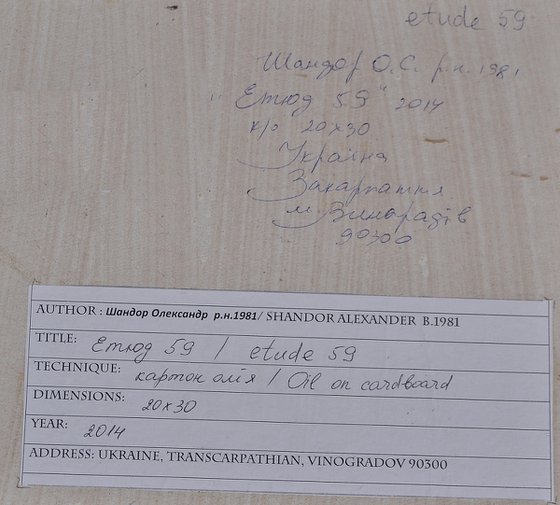 etude 59
Шандор О.С. р.н. 1981
"Етюд 59" 2014
к/о 20x30
Україна
Закарпаття
м. Виноградів
90300
AUTHOR : Шандор Олександр р.н.1981/ SHANDOR ALEXANDER B.1981
TITLE: Етюд 59 / etude 59
TECHNIQUE: картон олія / Oil on cardboard
DIMENSIONS: 20x30
YEAR: 2014
ADDRESS: UKRAINE, TRANSCARPATHIAN, VINOGRADOV 90300